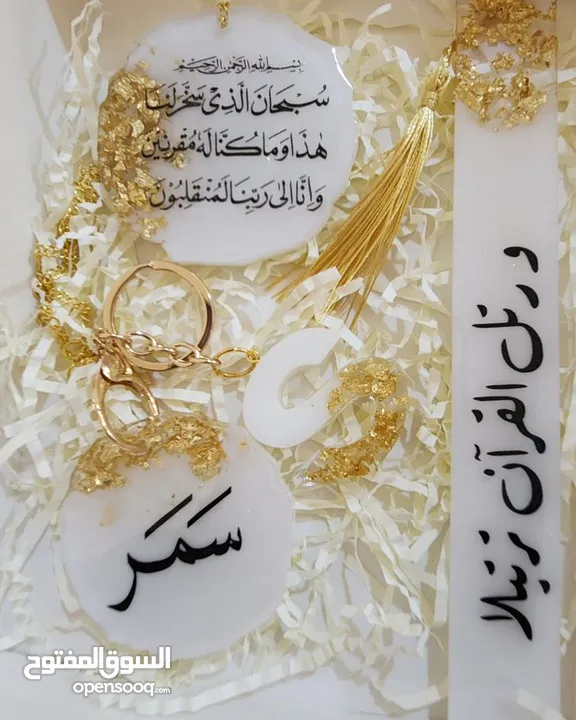 بسم الله الرحمن الرحيم
سُبْحَانَ الَّذِي سَخَّرَ لَنَا
هٰذَا وَمَا كُنَّا لَهُ مُقْرِنِينَ
وَإِنَّا إِلَى رَبِّنَا لَمُنْقَلِبُونَ
ورتل القرآن ترتيلا
سَمَر
السوق المفتوح
opensooq.com